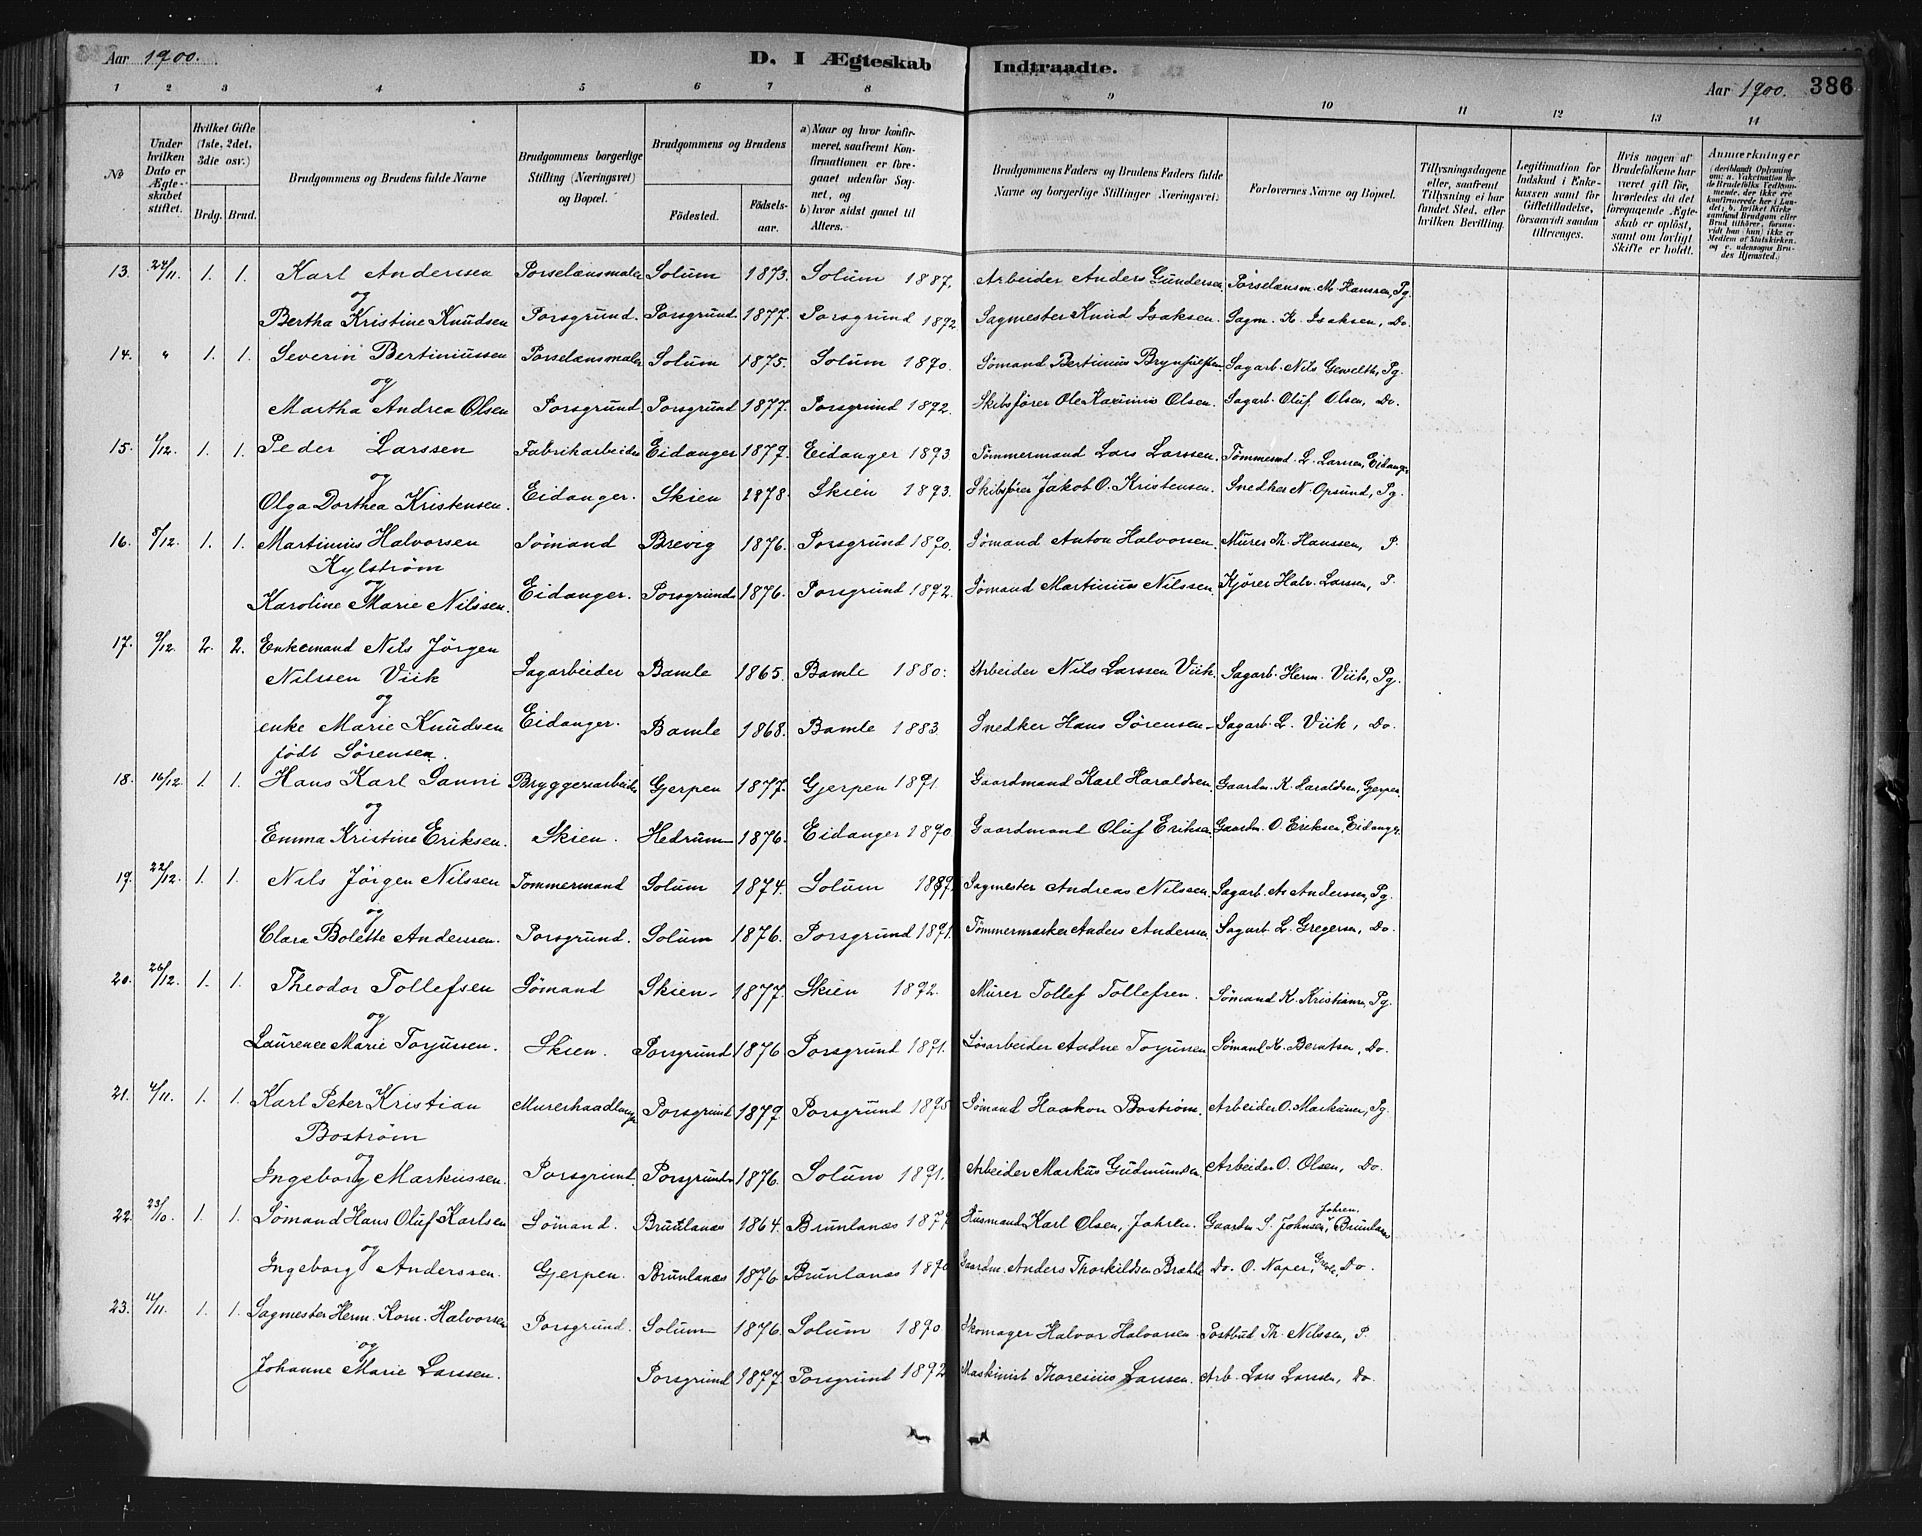 Aar 1900. D. I Ægteskab Indtraadte. Aar 1900. 386
1 2 3 4 5 6 7 8 9 10 11 12 13 14
No
Under hvilken Dato er Ægteskabet stiftet.
Hvilket Gifte (1ste, 2det, 3die osv.)
Brdg. Brud.
Brudgommens og Brudens fulde Navne
Brudgommens borgerlige Stilling (Næringsvei) og Bopæl.
Brudgommens og Brudens
Födested. Födselsaar.
a) Naar og hvor konfirmeret, saafremt Konfirmationen er foregaaet udenfor Sognet, og
b) hvor sidst gaaet til Alters.
Brudgommens Faders og Brudens Faders fulde Navne og borgerlige Stillinger (Næringsvei).
Forlovernes Navne og Bopæl.
Tillysningsdagene eller, saafremt Tillysning ei har fundet Sted, efter hvilken Bevilling.
Legitimation for Indskud i Enkekassen samt for Giftetilladelse, forsaavidt saadan tiltrænges.
Hvis nogen af Brudefolkene har været gift før, hvorledes da det foregaaende Ægteskab er opløst, samt om lovligt Skifte er holdt.
Anmærkninger
13. 24/11. 1. 1. Karl Andersen Porselænsmaler Solum 1873. Solum 1887. Arbeider Anders Gundersen. Porselænsm. M. Hanssen, Pg.
og
Bertha Kristine Knudsen Porsgrund. Porsgrund. 1877. Porsgrund 1892 Sagmester Knud Isaksen. Sagm. K. Isaksen, Do.
14. " 1. 1. Severin Bertiniussen Porselænsmaler Solum 1875. Solum 1890. Sømand Bertinius Sagarb. Nils Pg.
og
Martha Andrea Olsen Porsgrund. Porsgrund 1877. Porsgrund 1892. Skibsfører Ole Olsen. Sagarb. Oluf Olsen, Do.
15. 1/12. 1. 1. Peder Larssen Fabrikarbeider Eidanger 1879. Eidanger 1893. Tömmermand Lars Larssen. Tömmermd. L. Larssen, Eidanger
og
Olga Dorthea Kristensen. Eidanger. Skien 1878. Skien 1893. Skibsfører Jakob O. Kristensen. Snedker N. Opsund, Pg.
16. 8/12. 1. 1. Martinius Halvorsen Sömand Brevig 1876. Porsgrund 1890. Sömand Anton Halvorsen. Murer Th. Hanssen, P.
Kylström
og
Karoline Marie Nilssen. Eidanger. Porsgrund. 1876. Porsgrund 1892. Sömand Martinius Nilssen. Kjörer Halv. Larssen, P.
17. 9/12. 2. 2. Enkemand Nils Jörgen
Nilssen Viik Sagarbeider Bamle 1865. Bamle 1880. Arbeider Nils Larssen Viik. Sagarb. Herm. Viik, Pg.
og
enke Marie Knudsen Eidanger. Bamle 1868. Bamle 1883. Snedker Hans Sörensen Sagarb. L. Viik, Do.
född Sörensen.
18. 16/12. 1. 1. Hans Karl Sanni Bryggeriarbeider Gjerpen 1877. Gjerpen 1891. Gaardmand Karl Haraldsen. Gaardm. K. Haraldsen, Gjerpen.
og
Emma Kristine Eriksen. Skien. Hedrum 1876. Eidanger 1890. Gaardmand Oluf Eriksen. Gaardm. O. Eriksen, Eidanger
19. 22/12. 1. 1. Nils Jörgen Nilssen Tömmermand Solum 1874. Solum 1889. Sagmester Andreas Nilssen. Sagarb. A. Anderssen, Pg.
og
Clara Bolette Anderssen. Porsgrund. Solum 1876. Porsgrund 1891. Tömmermærker Anders Anderssen. Sagarb. L. Gregersen, Do.
20. 26/12. 1. 1. Theodor Tollefsen Sömand Skien 1877. Skien 1892. Murer Tollef Tollefsen. Sömand K. Kristiansen, Pg.
og
Laurence Marie Torjussen. Skien. Porsgrund 1876 Porsgrund 1891. Lösarbeider Aadne Torjussen Sömand K. Berntsen, Do.
21. 4/11. 1. 1. Karl Peter Kristian Murerhaandlanger Porsgrund 1879 Porsgrund 1895 Sömand Haakon Boström. Arbeider O. Markussen, Pg.
Boström
og
Ingeborg Markussen. Porsgrund. Porsgrund. 1876. Solum 1891. Arbeider Markus Gudmundsen Arbeider O. Olsen, Do.
22. 23/10. 1. 1. Sömand Hans Oluf Karlsen Sömand. Brunlanæs 1864. Brunlanæs 1879 Husmand Karl Olsen, Jahren. Gaardm S. Johnsen, Jahren. Brunlanæs
og
Ingeborg Anderssen. Gjerpen. Brunlanæs 1876 Brunlanæs 1890 Gaardm. Anders Thorkildsen Brække Do. O. Naper, Do.
23. 11/11. 1. 1. Sagmester Herm. Korn. Halvorsen Porsgrund. Solum 1876. Solum 1890 Skomager Halvor Halvorsen Postbud Th. Nilssen, P.
og
Johanne Marie Larssen. Porsgrund 1877. Porsgrund 1892 Maskinist Thoresius Larssen. Arb. Lars Larssen, Do.